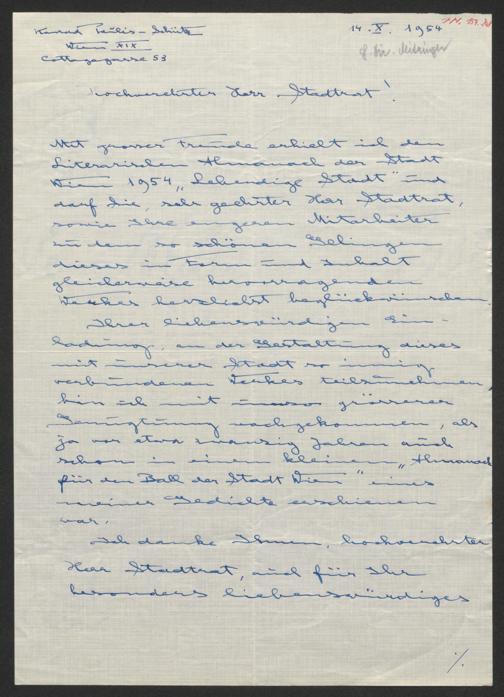 Konrad Paulis-Schütz
Wien XIX
Cottagegasse 53
14.X. 1954
Hochverehrter Herr Stadtrat!
Mit grosser Freude erhielt ich den
Literarischen Almanach der Stadt
Wien 1954 „Lebendige Stadt" und
darf Sie, sehr geehrter Herr Stadtrat,
sowie Ihre engeren Mitarbeiter
zu dem so schönen Gelingen
dieses in Form und Inhalt
gleicherweise hervorragenden
Werkes herzlichst beglückwünschen.
Ihrer liebenswürdigen Ein-
ladung, an der Gestaltung dieses
mit unserer Stadt so innig
verbundenen Werkes teilzunehmen,
bin ich mit umso grösserer
Genugtuung nachgekommen, als
ja vor etwa zwanzig Jahren auch
schon in einem kleinen „Almanach
für den Ball der Stadt Wien" eines
meiner Gedichte erschienen
war.
Ich danke Ihnen, hochverehrter
Herr Stadtrat, auch für Ihr
besonders liebenswürdiges
./.